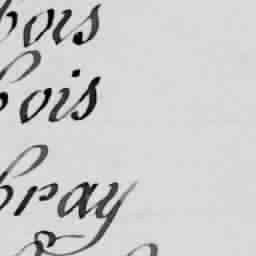 bois
bois
bray